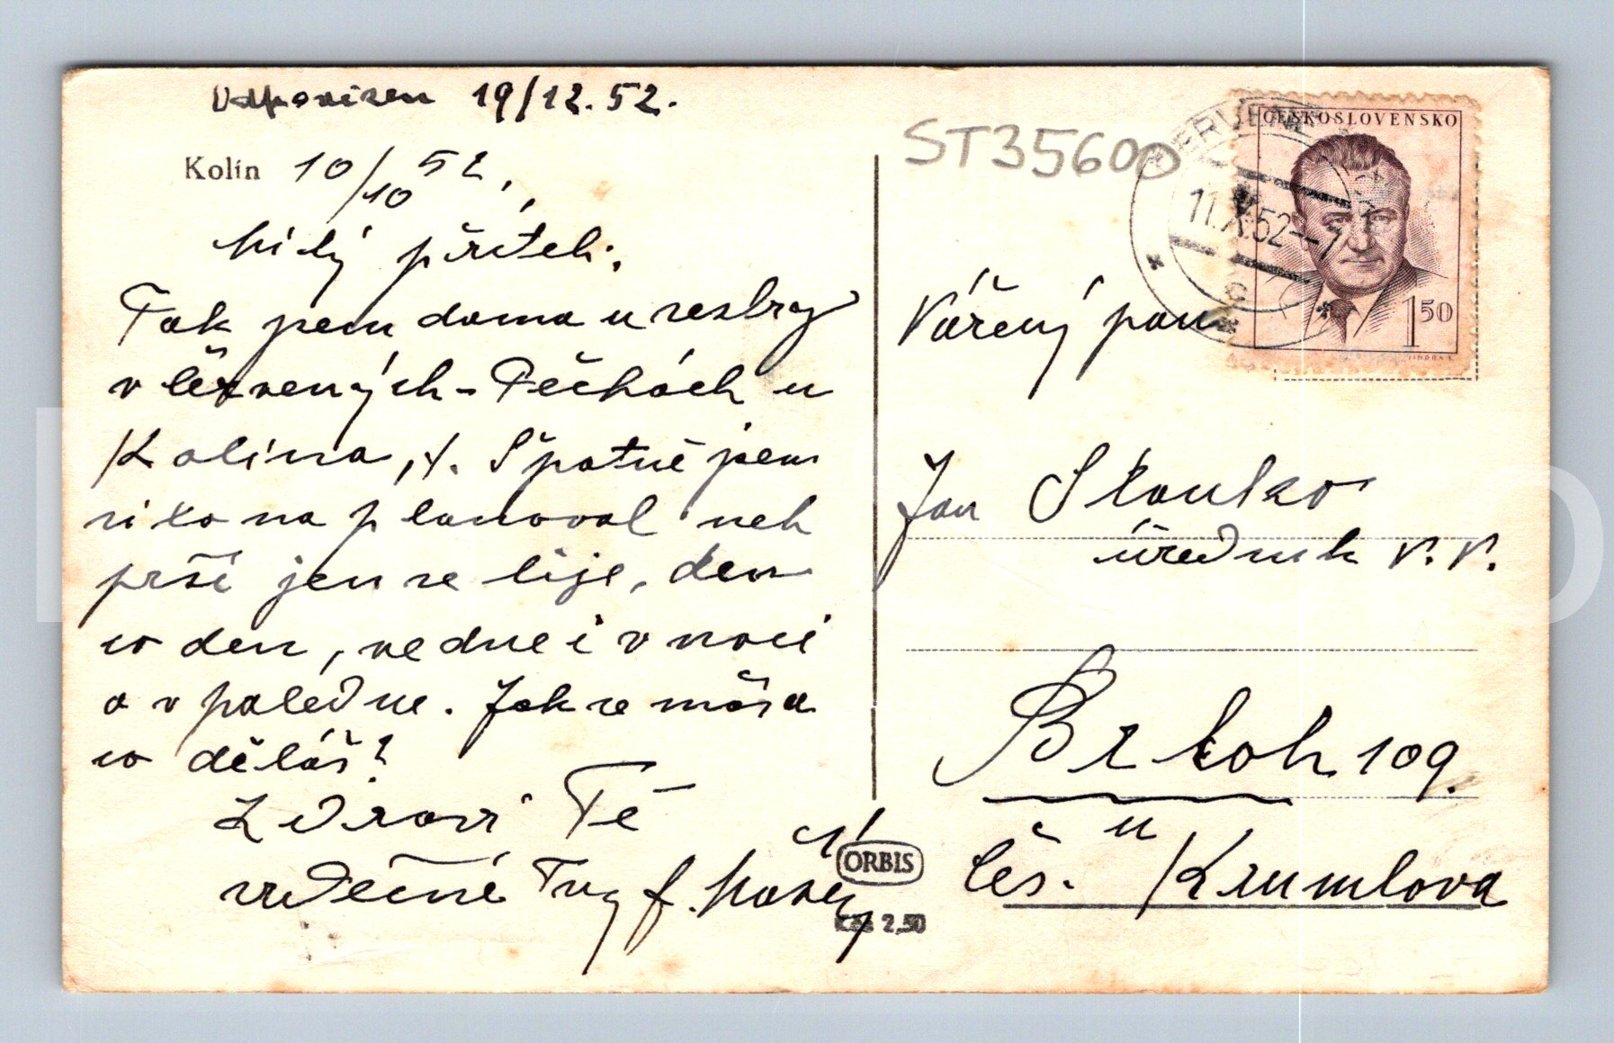 Odpovězen 19/12.52.
Kolín 10/10 52.
Milý příteli,
Tak jsem doma u sestry
v Červených-Pečkách u
Kolína,
Špatně jsem
si to naplanoval neb
prší jen se lije, den
co den, ve dne i v noci
a v poledne. Jak se máš a
co děláš?
Zdraví Tě
srdečně Tvůj
ORBIS
Kčs 2,50
ST35600
ČERVENÉ
11.X.52--7
c
ČESKOSLOVENSKO
1 50
Vážený pan
Jan Stanko
úředník v.v.
Brloh 109.
u
Čes. Krumlova